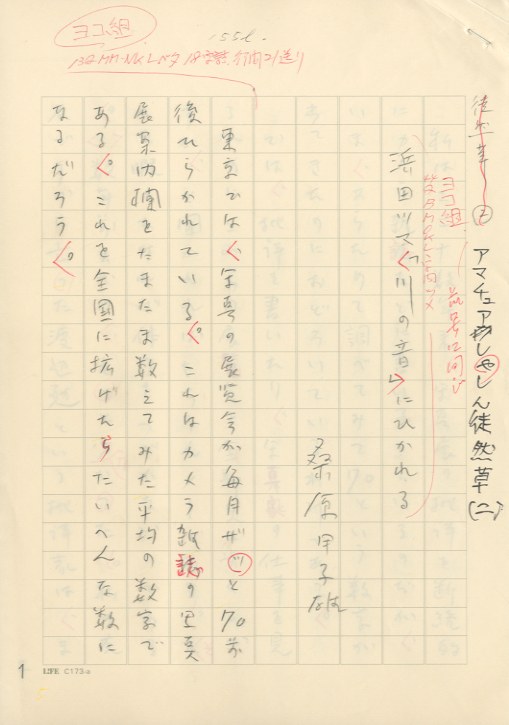 ヨコ組
行間21送り
アマチュアしゃしん徒然草(二)
ヨコ組
前号に同じ
浜田ツマ「川の音」にひかれる
桑原甲子雄
東京では、写真の展覧会が毎月ザッと70前
後ひらかれている。これはカメラ雑誌の写真
展案内欄をたまたま数えてみた平均の数字で
ある。これを全国に拡げたらたいへんな数に
なるだろう。
1
LIFE C173a